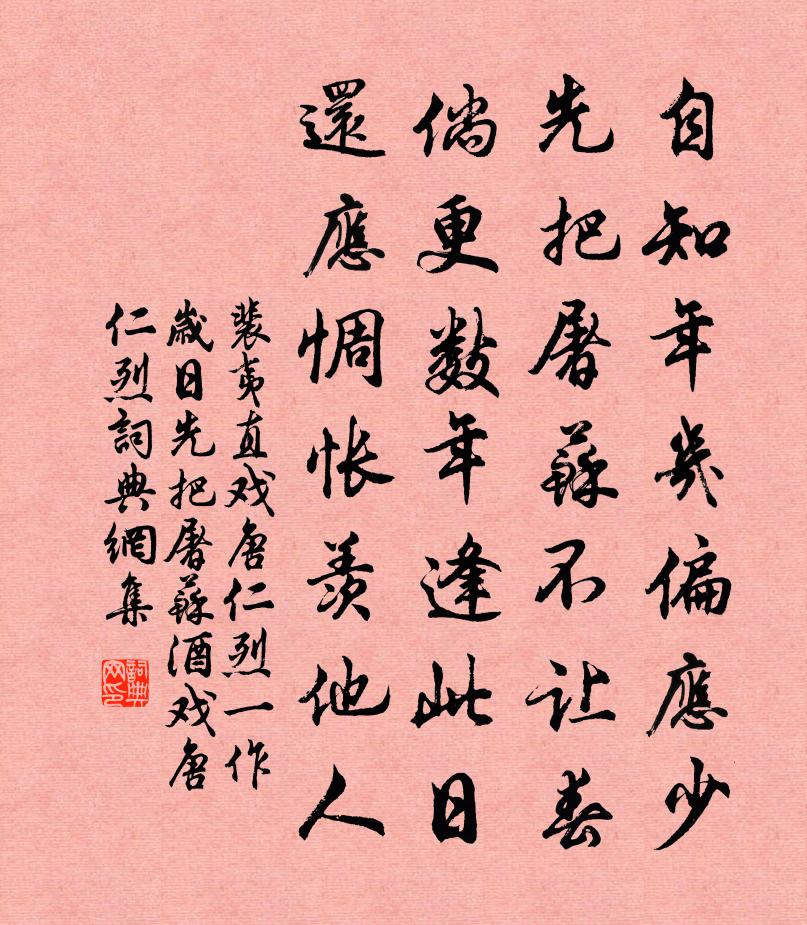 自知年幾偏應少
先把屠蘇不让春
倘更数年逢此日
還應惆怅羨他人
裴夷直戏唐仁烈一作
歲日先把屠蘇酒戏唐
仁烈詞典網集
詞典
网印